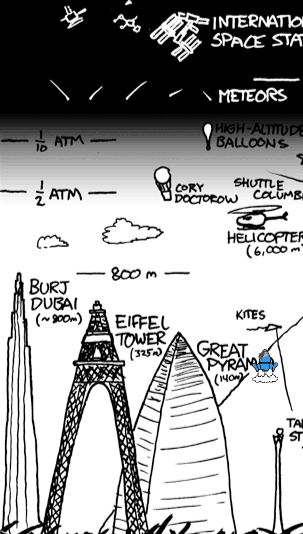 INTERNATIO
SPACE STAT
METEORS
1/10 ATM
HIGH-ALTITUDE
BALLOONS
1/2 ATM
CORY
DOCTOROW
SHUTTLE
COLUMB
HELICOPTER
(6,000 m
800 m
BURJ
DUBAI
(~800m)
EIFFEL
TOWER
(325m)
KITES
GREAT
PYRAM
(140m)
TA
ST